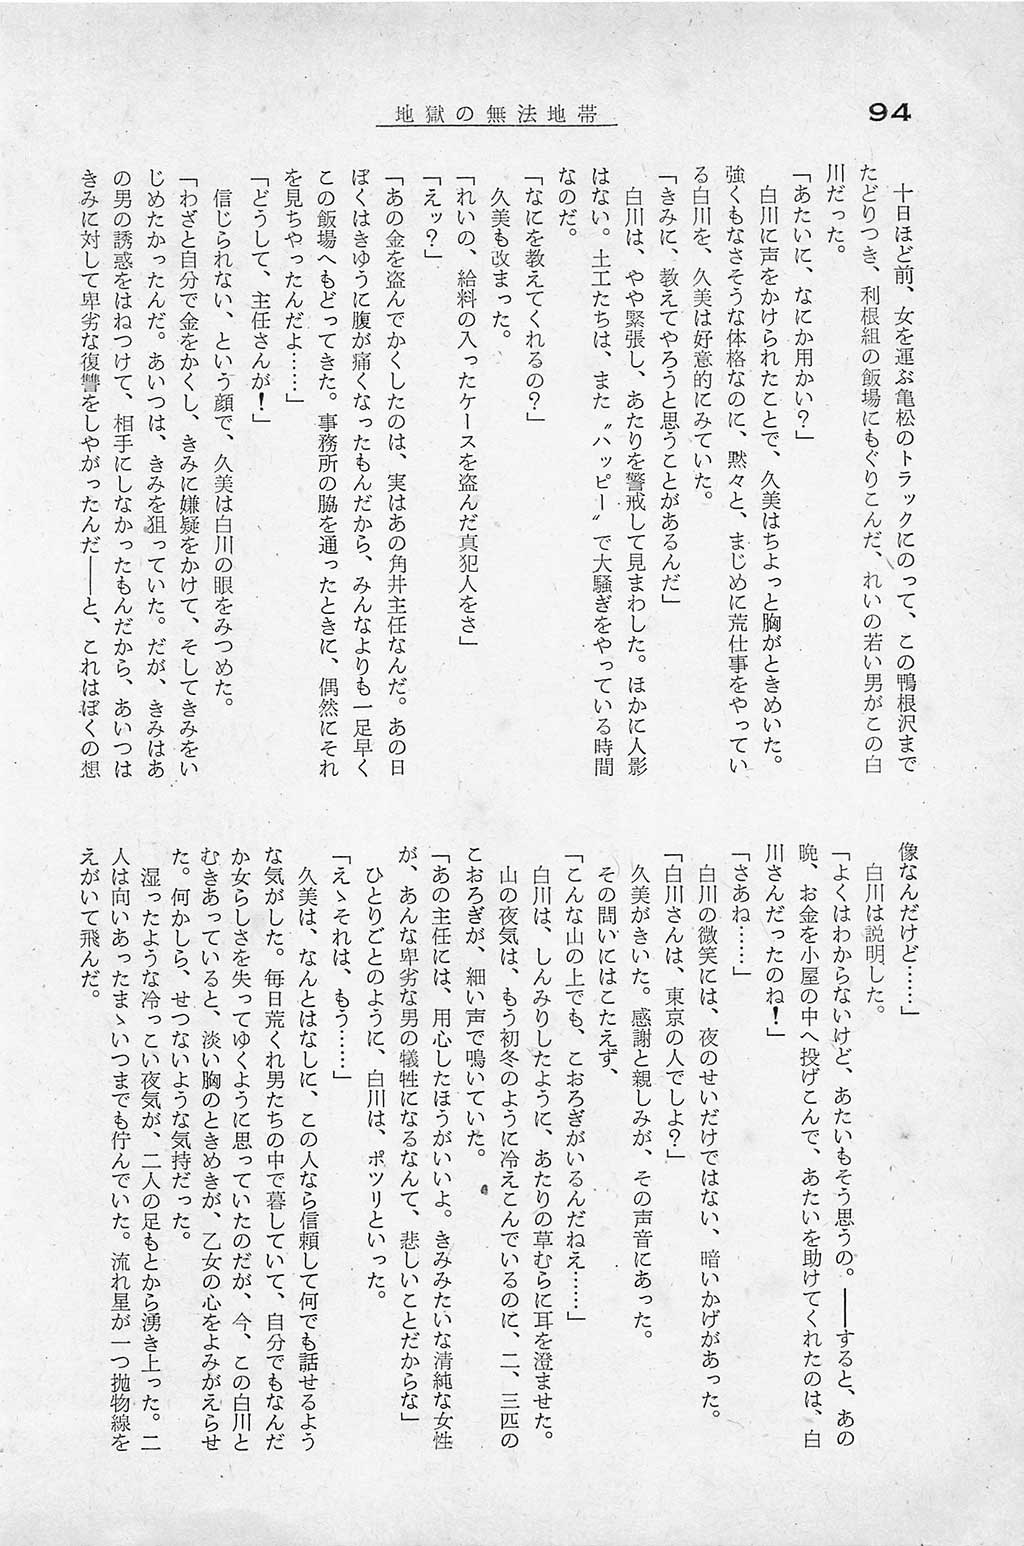 94
地獄の無法地帯
十日ほど前、女を運ぶ亀松のトラックにのって、この鴨根沢まで
たどりつき、利根組の飯場にもぐりこんだ、れいの若い男がこの白
川だった。
「あたいに、なにか用かい？」
白川に声をかけられたことで、久美はちょっと胸がときめいた。
強くもなさそうな体格なのに、黙々と、まじめに荒仕事をやってい
る白川を、久美は好意的にみていた。
「きみに、教えてやろうと思うことがあるんだ」
白川は、やや緊張し、あたりを警戒して見まわした。ほかに人影
はない。土工たちは、また〝ハッピー〟で大騒ぎをやっている時間
なのだ。
「なにを教えてくれるの？」
久美も改まった。
「れいの、給料の入ったケースを盗んだ真犯人をさ」
「えッ？」
「あの金を盗んでかくしたのは、実はあの角井主任なんだ。あの日
ぼくはきゅうに腹が痛くなったもんだから、みんなよりも一足早く
この飯場へもどってきた。事務所の脇を通ったときに、偶然にそれ
を見ちゃったんだよ……」
「どうして、主任さんが！」
信じられない、という顔で、久美は白川の眼をみつめた。
「わざと自分で金をかくし、きみに嫌疑をかけて、そしてきみをい
じめたかったんだ。あいつは、きみを狙っていた。だが、きみはあ
の男の誘惑をはねつけて、相手にしなかったもんだから、あいつは
きみに対して卑劣な復讐をしやがったんだ――と、これはぼくの想
像なんだけど……」
白川は説明した。
「よくはわからないけど、あたいもそう思うの。――すると、あの
晩、お金を小屋の中へ投げこんで、あたいを助けてくれたのは、白
川さんだったのね！」
「さあね……」
白川の微笑には、夜のせいだけではない、暗いかげがあった。
「白川さんは、東京の人でしょ？」
久美がきいた。感謝と親しみが、その声音にあった。
その問いにはこたえず、
「こんな山の上でも、こおろぎがいるんだねえ……」
白川は、しんみりしたように、あたりの草むらに耳を澄ませた。
山の夜気は、もう初冬のように冷えこんでいるのに、二、三匹の
こおろぎが、細い声で鳴いていた。
「あの主任には、用心したほうがいいよ。きみみたいな清純な女性
が、あんな卑劣な男の犠牲になるなんて、悲しいことだからな」
ひとりごとのように、白川は、ポツリといった。
「えゝそれは、もう……」
久美は、なんとはなしに、この人なら信頼して何でも話せるよう
な気がした。毎日荒くれ男たちの中で暮していて、自分でもなんだ
か女らしさを失ってゆくように思っていたのだが、今、この白川と
むきあっていると、淡い胸のときめきが、乙女の心をよみがえらせ
た。何かしら、せつないような気持だった。
湿ったような冷っこい夜気が、二人の足もとから湧き上った。二
人は向いあったまゝいつまでも佇んでいた。流れ星が一つ抛物線を
えがいて飛んだ。